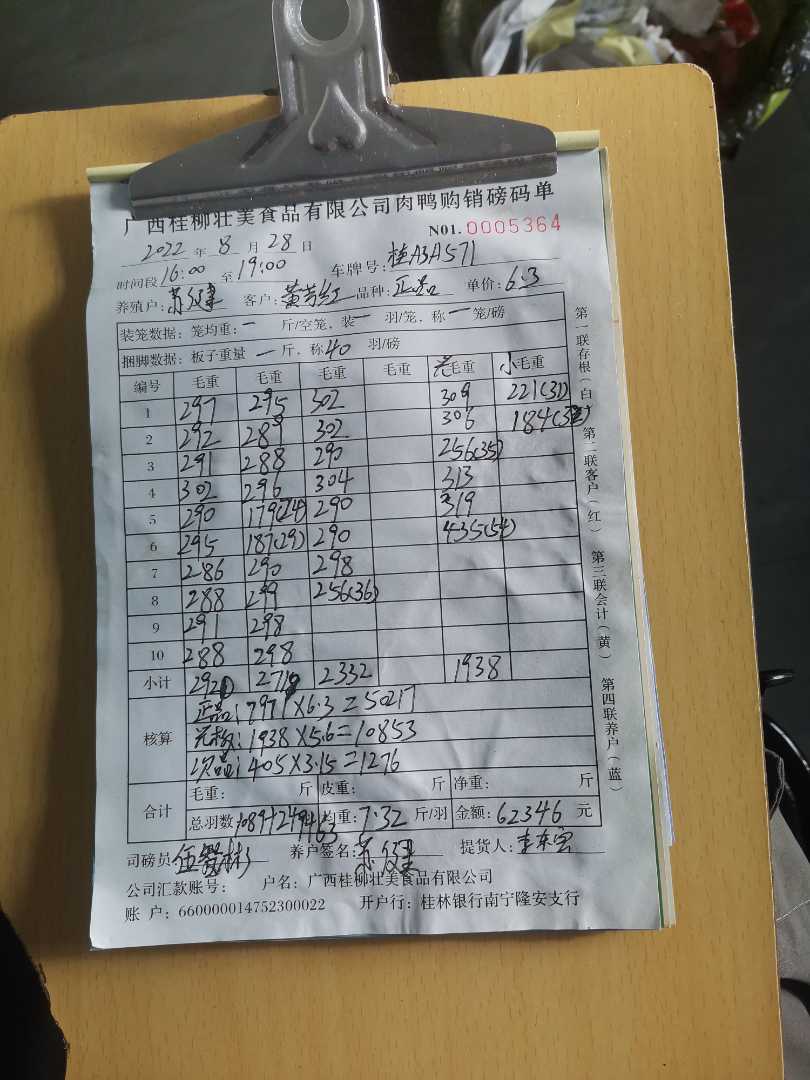 广西桂柳壮美食品有限公司肉鸭购销磅码单
NO1.0005364
2022年8月28日
时间段16:00至19:00 车牌号:桂A3A571
养殖户: 客户:黄芳红 品种:正品 单价:6.3
装笼数据:笼均重:一 斤/空笼,装一 羽/笼,称一 笼/磅
捆脚数据:板子重量 一 斤,称40 羽/磅
编号 毛重 毛重 毛重 毛重 毛重 小毛重
1 297 295 302 309 221(32)
2 292 289 302 306
3 291 288 290 256(35)
4 302 296 304 313
5 290 179(24) 290 319
6 295 187(29) 290 435(54)
7 286 290 298
8 288 299 256(36)
9 291 298
10 288 298
小计 2920 2719 2332 1938
核算
正品:7971×6.3=50217
1938×5.6=10853
次品:405×3.15=1276
合计
毛重: 斤 皮重: 斤 净重: 斤
总羽数: 均重:7.32 斤/羽 金额:62346 元
司磅员: 养户签名: 提货人:
公司汇款账号: 户名:广西桂柳壮美食品有限公司
账户:660000014752300022 开户行:桂林银行南宁隆安支行
第一联存根(白) 第二联客户(红) 第三联会计(黄) 第四联养户(蓝)